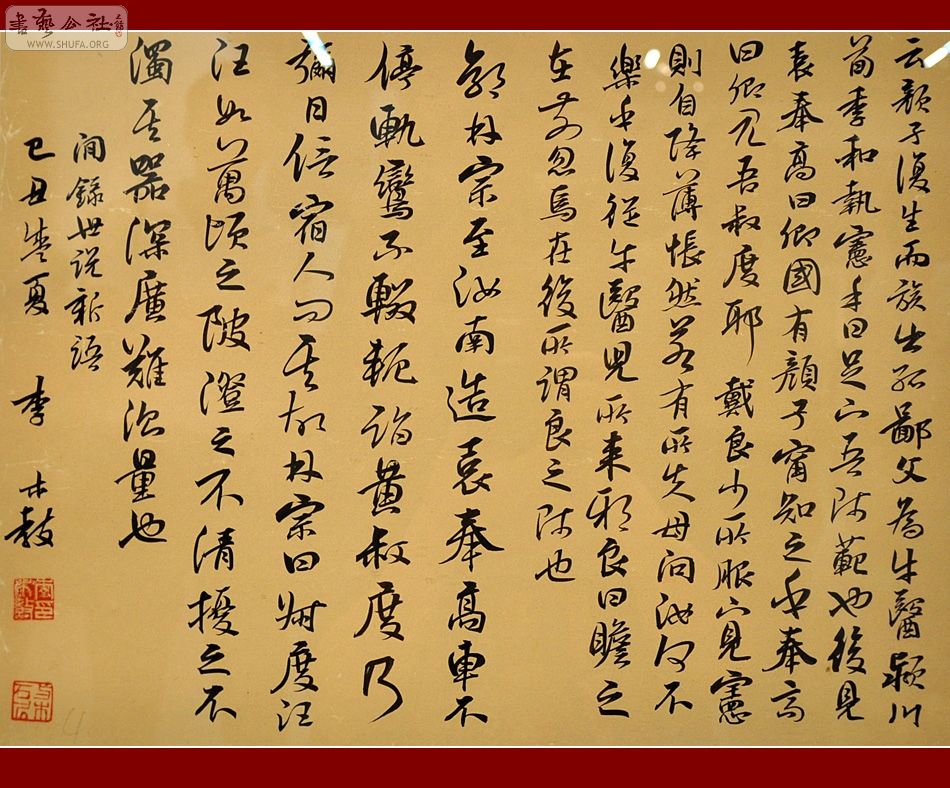 書藝公社
WWW.SHUFA.ORG
云顏子復生而族出孤鄙父為牛醫潁川
荀季和執憲手曰足下吾師範也後見
袁奉高曰卿國有顏子甯知之乎奉高
曰卿見吾叔度耶 戴良少所服下見憲
則自降薄悵然若有所失母問汝何不
樂乎復從牛醫兒所來邪良曰瞻之
在前忽焉在後所謂良之師也
郭林宗至汝南造袁奉高車不
停軌鸞不輟軛詣黃叔度乃
彌日信宿人問其故林宗曰叔度汪
汪如萬頃之陂澄之不清擾之不
濁其器深廣難測量也
閒錄世說新語
己丑盛夏 李木